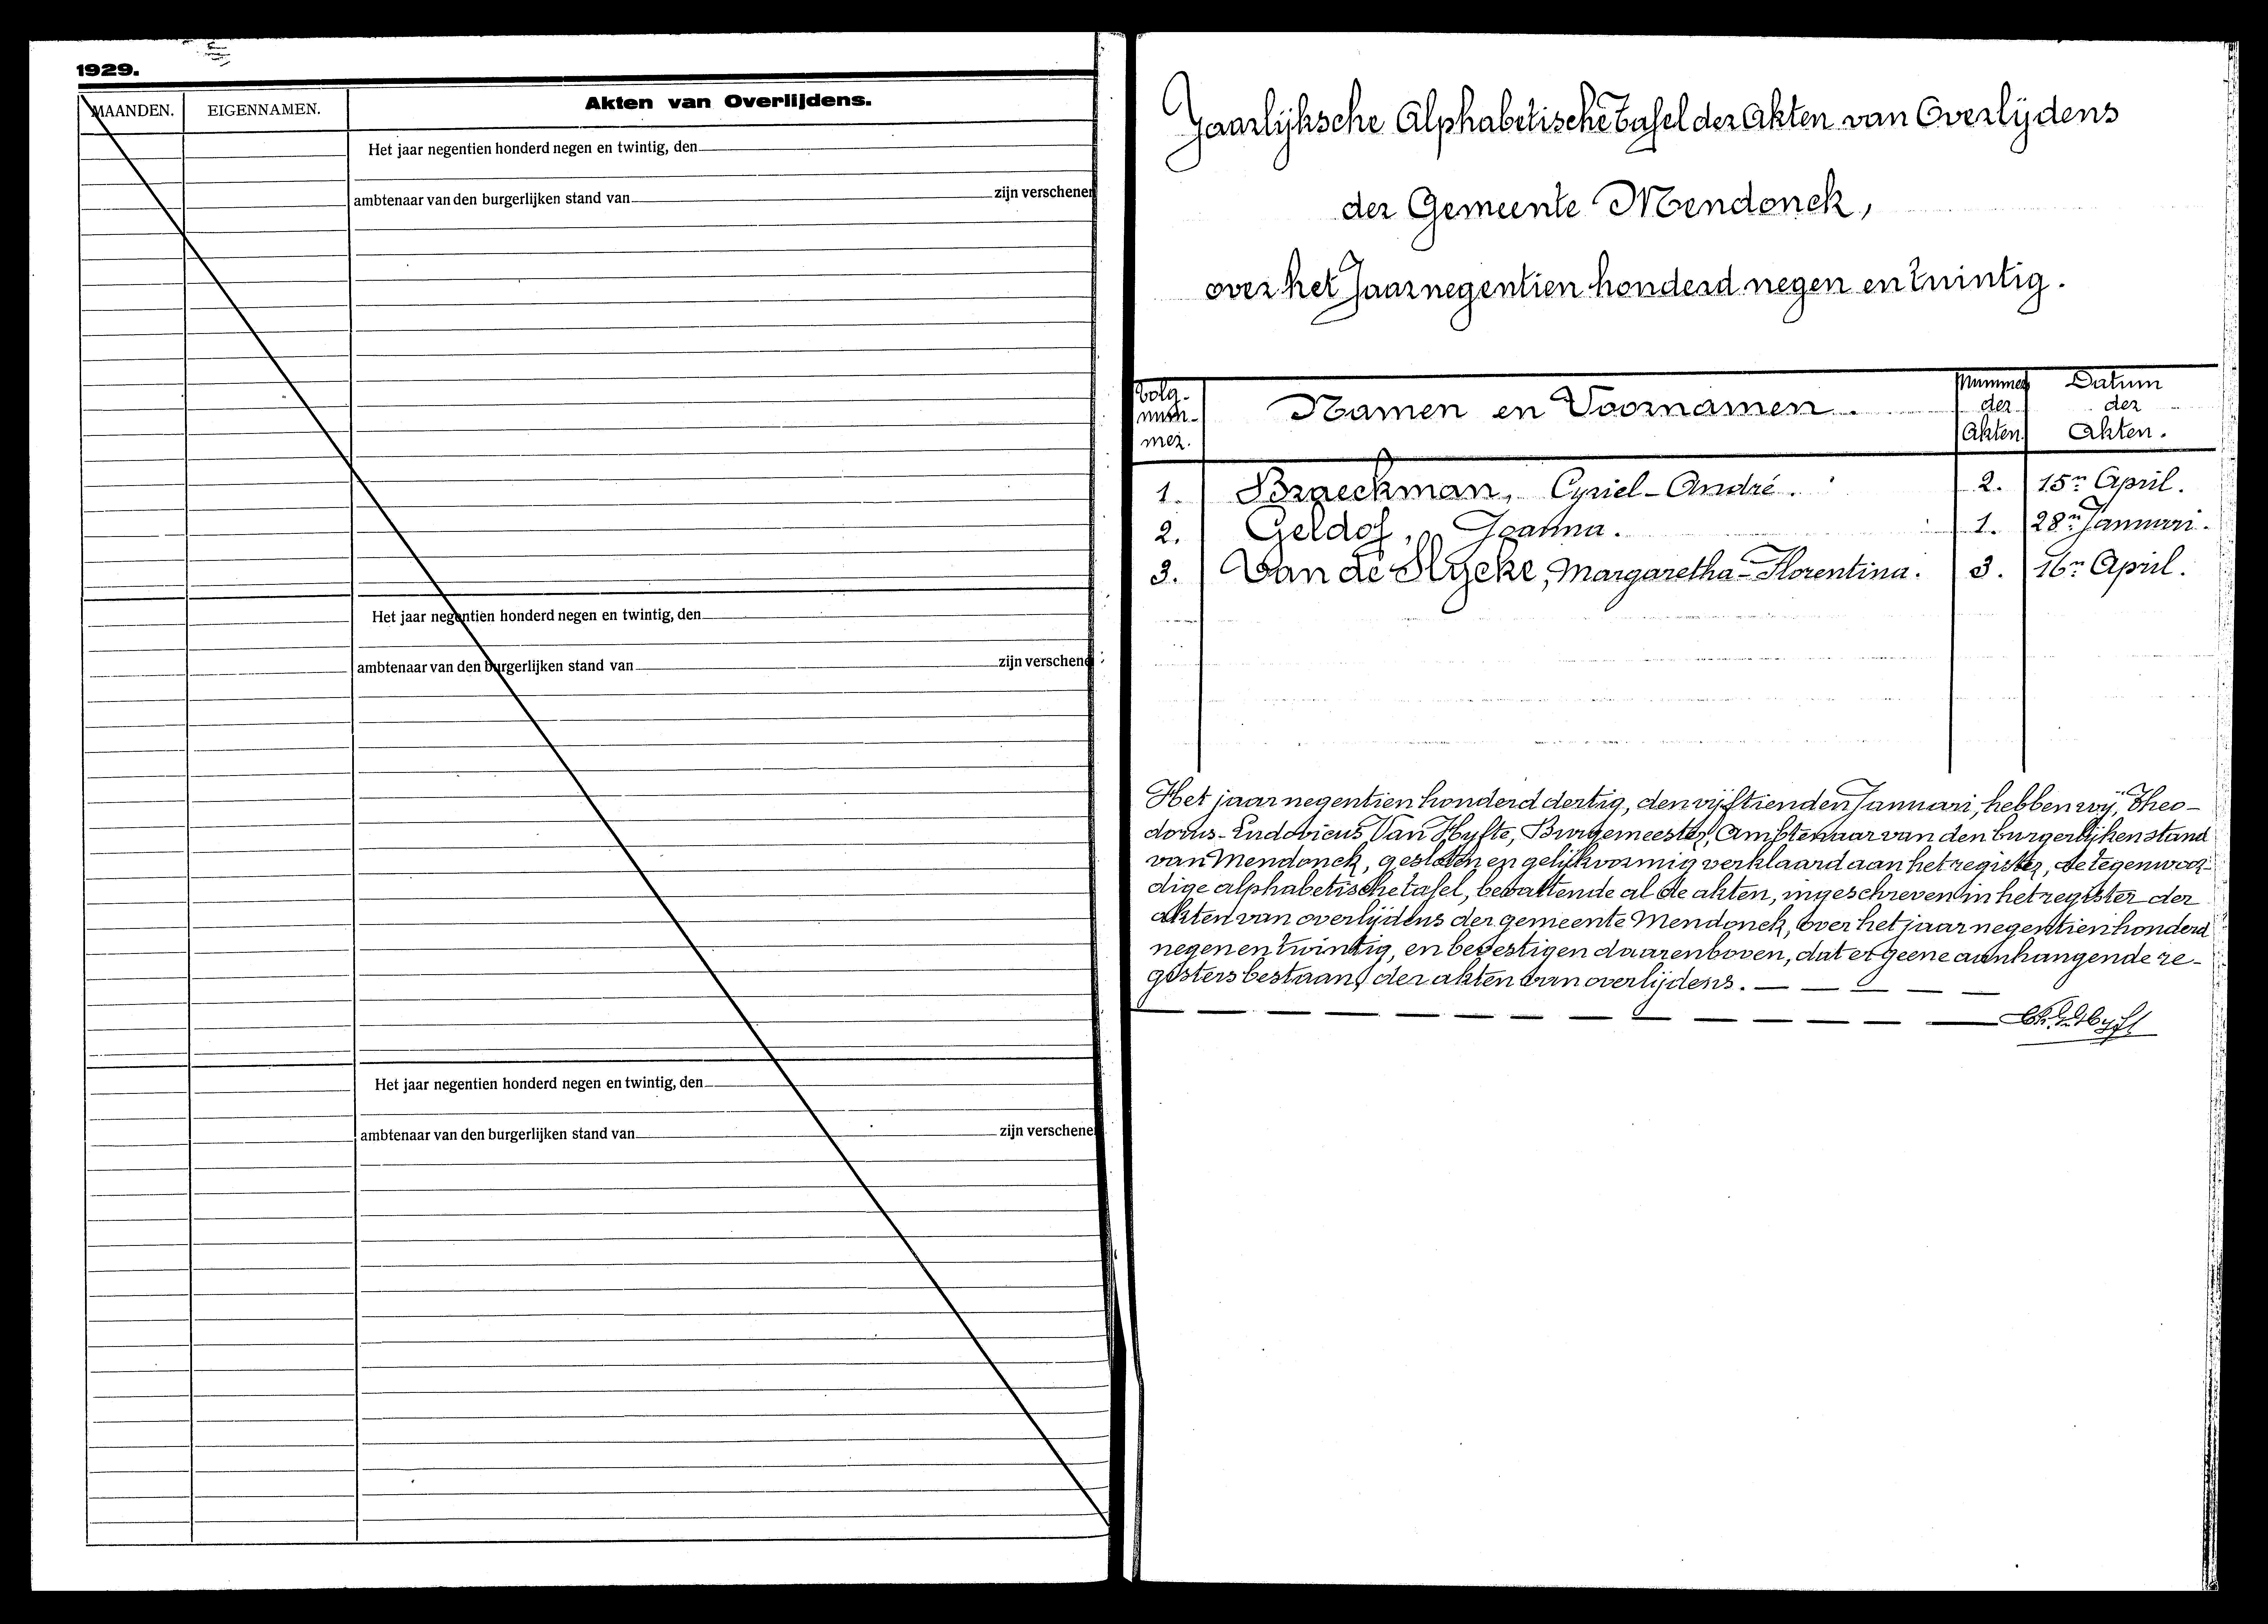 1929.
MAANDEN. EIGENNAMEN. Akten van Overlijdens.
Het jaar negentien honderd negen en twintig, den
ambtenaar van den burgerlijken stand van zijn verschenen
Het jaar negentien honderd negen en twintig, den
ambtenaar van den burgerlijken stand van zijn verschene
Het jaar negentien honderd negen en twintig, den
ambtenaar van den burgerlijken stand van zijn verschene
Jaarlijksche Alphabetische Tafel der Akten van Overlijdens
der Gemeente Mendonck,
over het Jaar negentien honderd negen en twintig.
Volg-
num-
mer.
Namen en Voornamen.
Nummer
der
Akten.
Datum
der
Akten.
1. Braeckman, Cyriel-André. 2. 15n April.
2. Geldof, Joanna. 1. 28n Januari.
3. Van de Slycke, Margaretha-Florentina. 3. 16n April.
Het jaar negentien honderd dertig, den vijftienden Januari, hebben wij, Theo-
dorus-Ludovicus Van Hyfte, Burgemeester, Ambtenaar van den burgerlijken stand
van Mendonck, gesloten en gelijkvormig verklaard aan het register, de tegenwoor-
dige alphabetische tafel, bevattende al de akten, ingeschreven in het register der
akten van overlijdens der gemeente Mendonck, over het jaar negentien honderd
negen en twintig, en bevestigen daarenboven, dat er geene aanhangende re-
gisters bestaan, der akten van overlijdens.